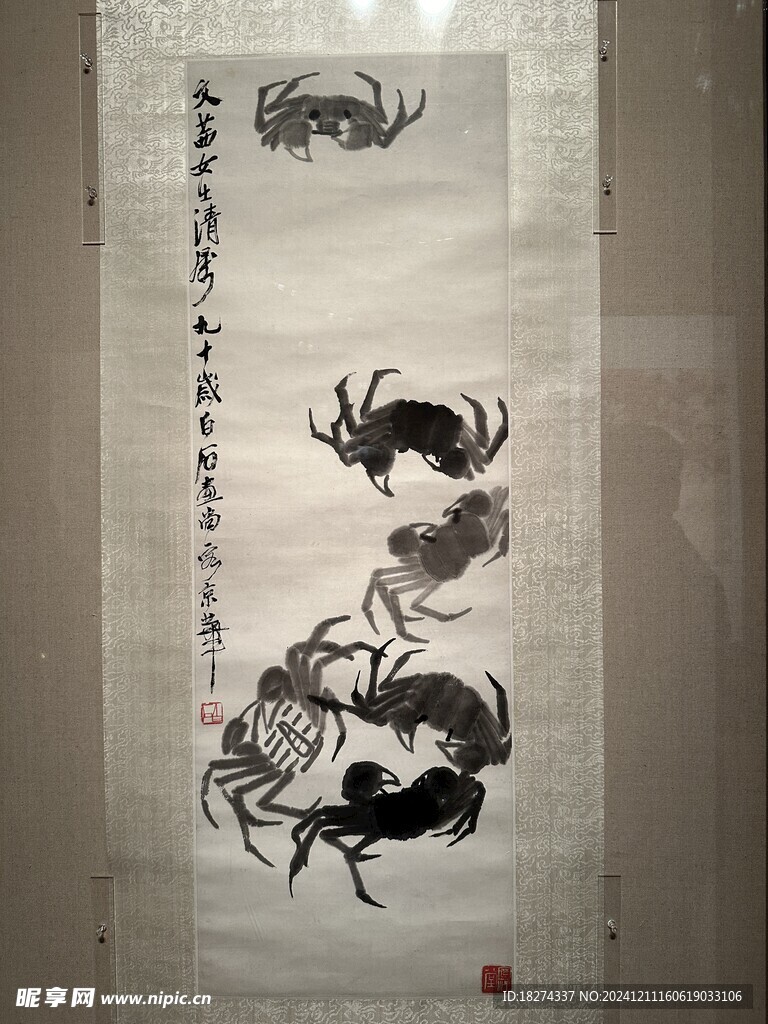 文茜女士清属九十岁白石画尚客京华
昵享网 www.nipic.cn
ID:18274337 NO:20241211160619033106